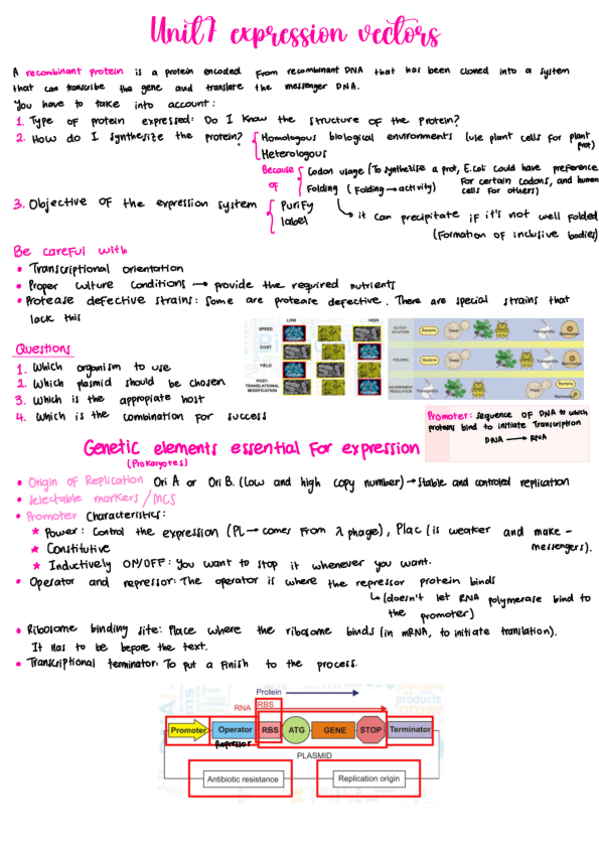 Unit 7 expression vectors
A recombinant protein is a protein encoded from recombinant DNA that has been cloned into a system
that can transcribe the gene and translate the messenger DNA.
You have to take into account:
1. Type of protein expressed: Do I know the structure of the protein?
2. How do I synthesize the protein? Homologous biological environments (use plant cells for plant prot)
Heterologous
Because of
Codon usage (To synthetise a prot, E.coli could have preference
for certain codons, and human cells for others)
Folding (Folding → activity)
3. Objective of the expression system
Purify
label
it can precipitate if it's not well folded
(formation of inclusive bodies)
Be careful with
• Transcriptional orientation
• Proper culture conditions → provide the required nutrients
• Protease defective strains: Some are protease defective. There are special strains that
lack this
LOW HIGH
SPEED
COST
YIELD
POST-
TRANSLATIONAL
MODIFICATION
Bacteria
Yeast
Transgenics
FOLDING
Bacteria
Yeast
Transgenics
GOVERNMENT
REGULATION
Transgenics
Yeast
Bacteria
Questions
1. Which organism to use
2. Which plasmid should be chosen
3. Which is the appropiate host
4. Which is the combination for success
Promoter: sequence of DNA to which
proteins bind to initiate transcription
DNA → RNA
Genetic elements essential for expression
(Prokaryotes)
• Origin of Replication Ori A or Ori B. (low and high copy number) → stable and controled replication
• Selectable markers / MCS
• Promoter Characteristics:
* Power: Control the expression (PL → comes from λ phage), Plac (is weaker and make -
messengers).
* Constitutive
* Inductively ON/OFF: You want to stop it whenever you want.
• Operator and repressor: The operator is where the repressor protein binds
(doesn't let RNA polymerase bind to
the promoter)
• Ribosome binding site: Place where the ribosome binds (in mRNA, to initiate translation).
It has to be before the text.
• Transcriptional terminator: To put a finish to the process.
Protein
RNA RBS
Promoter Operator RBS ATG GENE STOP Terminator
Repressor
PLASMID
Antibiotic resistance Replication origin